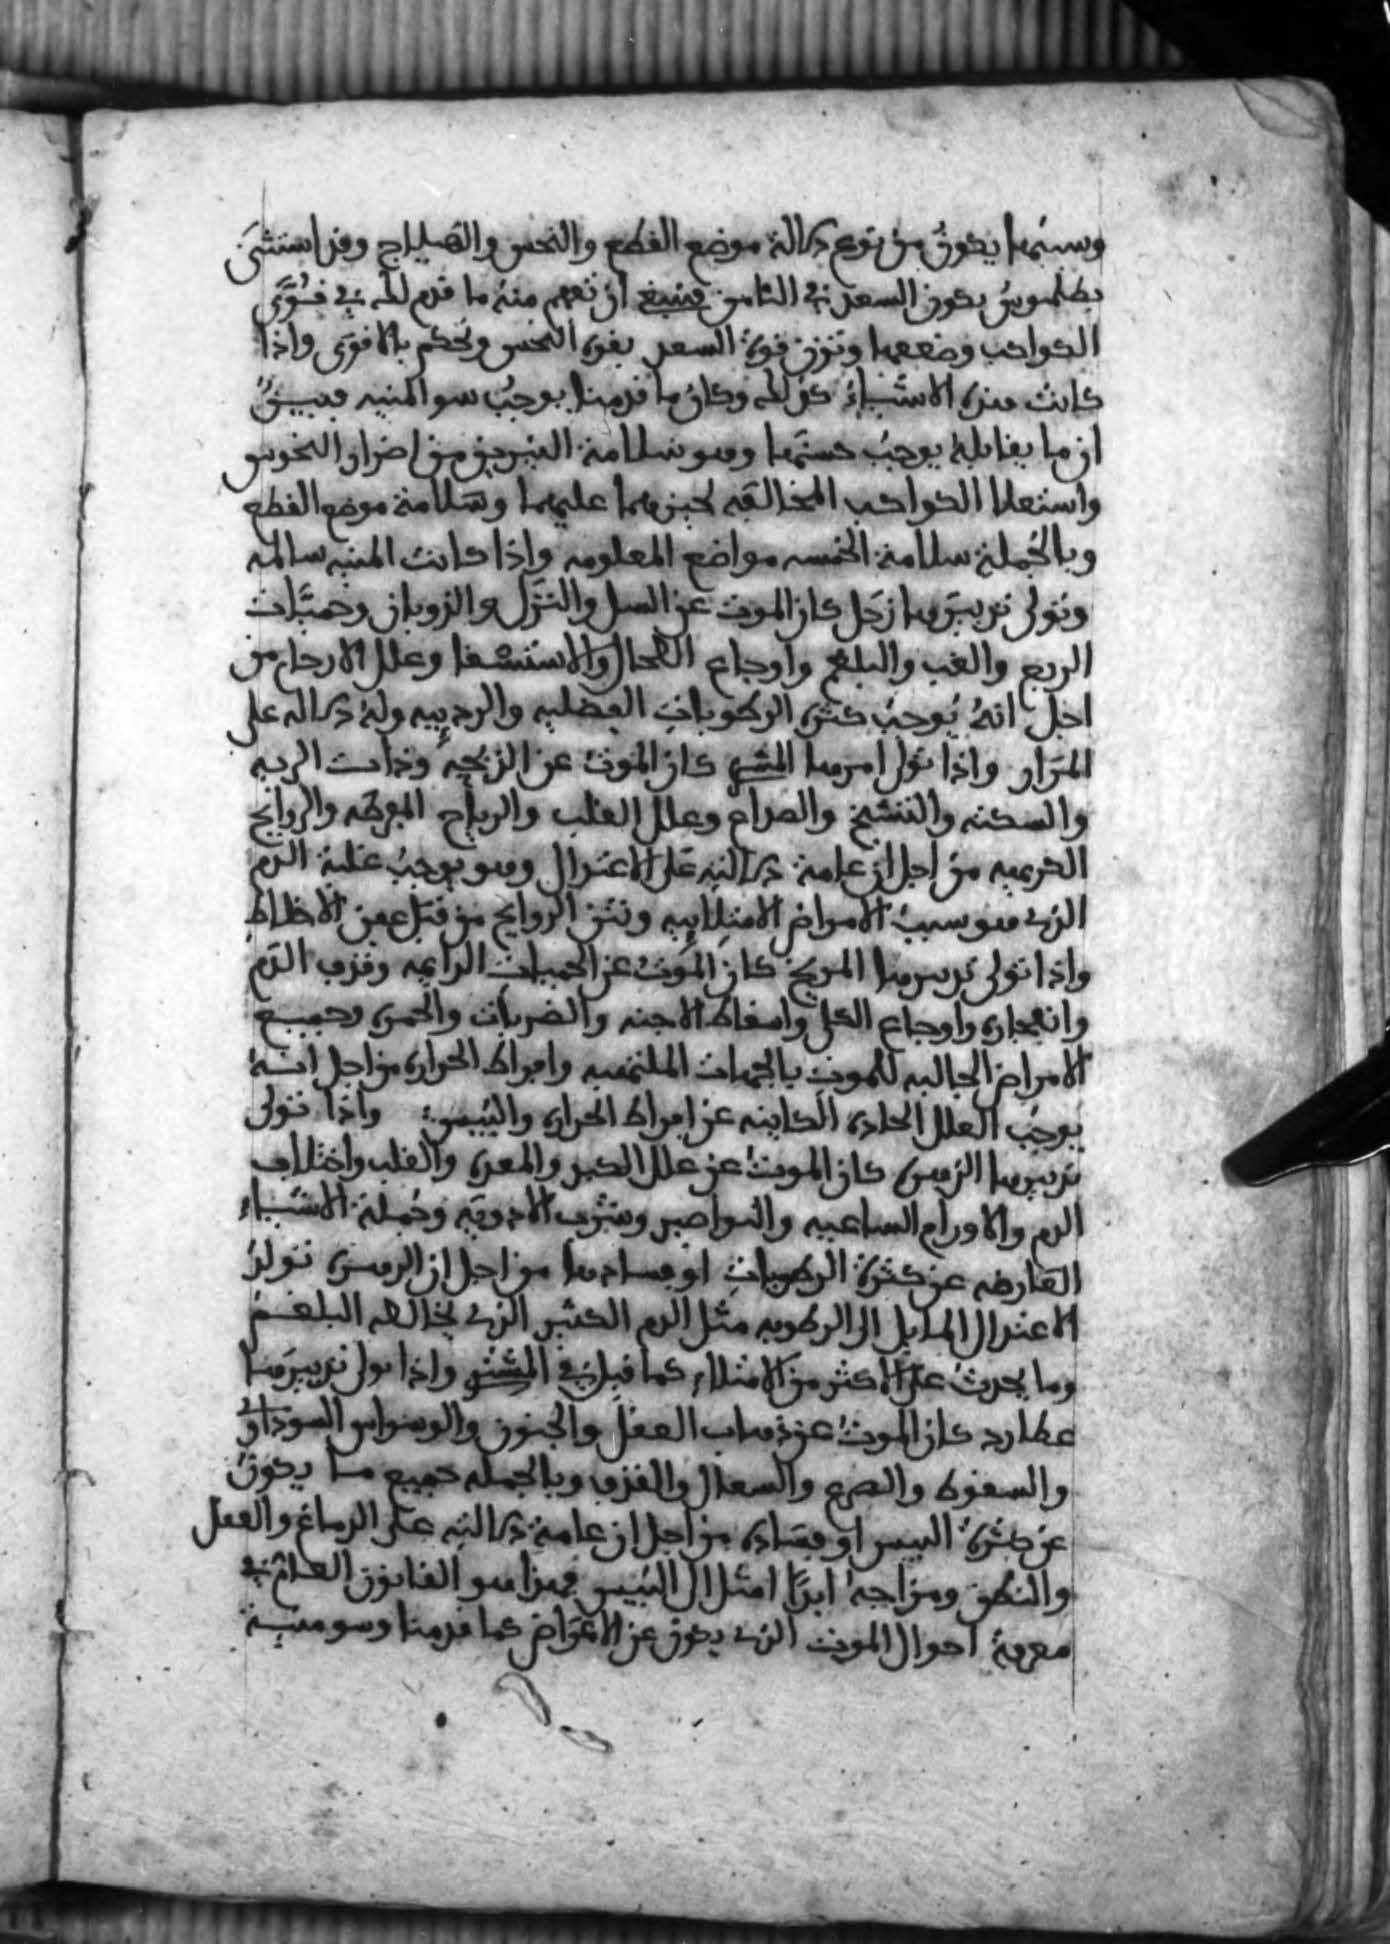 وسببها يكون من نوع دلالة موضع القطع والنحس والهيلاج وقد استثنى
بطلميوس بكون السعد في الثامن فينبغي ان تفهم منه ما قدم لك في قوى
الكواكب وضعفها وتزن قوة السعد بقوة النحس وتحكم بالاقوى واذا
كانت هذه الاشياء كذلك وكان ما قدمنا يوجب سو المنيه فبين
ان ما يقابله يوجب حسنها وهو سلامة النيرين من اضرار النحوس
واستعلا الكواكب المخالفه لحيزهما عليهما وسلامة موضع القطع
وبالجملة سلامة الخمسه مواضع المعلومه واذا كانت المنيه سالمه
وتولى تدبيرها زحل كان الموت عن السل والنزل والذوبان وحميات
الربع والغب والبلغم واوجاع الطحال والاستسقا وعلل الارحام من
اجل انه يوجب كثرة الرطوبات الفضليه والرديه وله دلاله على
المرار واذا تولى امرها المشتري كان الموت عن الذبحه وذات الريه
والسكته والتشنج والصداع وعلل القلب والرياح المفرطه والروايح
الكريهيه من اجل ان عامة دلالته على الاعتدال وهو يوجب غلبة الدم
الذي هو سبب الامراض الامتلاييه ونتن الروايح من قبل عفن الاخلاط
واذا تولى تدبيرها المريخ كان الموت عن الحميات الدايمه وقذف الدم
وانفجاره واوجاع الكلى واسقاط الاجنه والضربات والحمره وجميع
الامراض الجالبه للموت بالحميات الملتهبه وافراط الحراره من اجل انه
يوجب العلل الحاده الكاينه عن افراط الحراره واليبس: واذا تولى
تدبيرها الزهره كان الموت عن علل الكبد والمعده والقلب واختلاف
الدم والاورام الساعيه والنواصير وشرب الادويه وجملة الاشياء
العارضه عن كثرة الرطوبات او فسادها من اجل ان الزهره تولد
الاعتدال المايل الى الرطوبه مثل الدم الكثير الذي يخالطه البلغم
وما يحدث على الاكثر من الامتلاء كما قيل في المشتري واذا تولى تدبيرها
عطارد كان الموت عن ذهاب العقل والجنون والوسواس السوداوي
والسقوط والصرع والسعال والقذف وبالجمله جميع ما يكون
عن كثرة اليبس او فساده من اجل ان عامة دلالته على الدماغ والعقل
والنطق ومزاجه ابدا اميل الى اليبس فهذا هو القانون العام في
معرفة احوال الموت الذي يكون عن الاعراض كما قدمنا وسو منيه